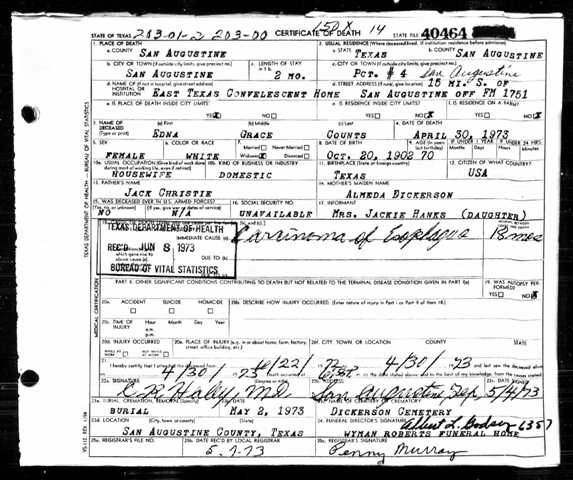 203-01-2 203-00 150X 14
STATE OF TEXAS CERTIFICATE OF DEATH STATE FILE 40464
1. PLACE OF DEATH 2. USUAL RESIDENCE (Where deceased lived. If institution: residence before admission)
a. COUNTY SAN AUGUSTINE a. STATE TEXAS b. COUNTY SAN AUGUSTINE
b. CITY OR TOWN (If outside city limits, give precinct no.) c. LENGTH OF STAY c. CITY OR TOWN (If outside city limits, give precinct no.)
SAN AUGUSTINE 2 MO. PCT. # 4 San Augustine
d. NAME OF (If not in hospital, give street address) HOSPITAL OR INSTITUTION d. STREET ADDRESS (If rural, give location) 15 MI. S. OF
EAST TEXAS CONVELESCENT HOME SAN AUGUSTINE OFF FM 1751
e. IS PLACE OF DEATH INSIDE CITY LIMITS? e. IS RESIDENCE INSIDE CITY LIMITS? f. IS RESIDENCE ON A FARM?
YES X NO YES NO X YES NO X
3. NAME OF DECEASED (Type or print) (a) First (b) Middle (c) Last 4. DATE OF DEATH
EDNA GRACE COUNTS APRIL 30, 1973
5. SEX 6. COLOR OR RACE 7. Married Never Married 8. DATE OF BIRTH 9. AGE (In years last birthday) IF UNDER 1 YEAR IF UNDER 24 HRS.
FEMALE WHITE Widowed X Divorced OCT. 20, 1902 70 Months Days Hours Minutes
10a. USUAL OCCUPATION (Give kind of work done 10b. KIND OF BUSINESS OR INDUSTRY 11. BIRTHPLACE (State or foreign country) 12. CITIZEN OF WHAT COUNTRY?
HOUSEWIFE DOMESTIC TEXAS USA
13. FATHER'S NAME 14. MOTHER'S MAIDEN NAME
JACK CHRISTIE ALMEDA DICKERSON
15. WAS DECEASED EVER IN U.S. ARMED FORCES? 16. SOCIAL SECURITY NO. 17. INFORMANT
(Yes, no, or unknown) (If yes, give war or dates of service)
NO N/A UNAVAILABLE MRS. JACKIE HANKS (DAUGHTER)
TEXAS DEPARTMENT OF HEALTH
IMMEDIATE CAUSE (a) Carcinoma of Esophagus
REC'D JUN 8 1973
DUE TO (b)
BUREAU OF VITAL STATISTICS
PART II. OTHER SIGNIFICANT CONDITIONS CONTRIBUTING TO DEATH BUT NOT RELATED TO THE TERMINAL DISEASE CONDITION GIVEN IN PART I(a) 19. WAS AUTOPSY PERFORMED?
YES NO X
20a. ACCIDENT SUICIDE HOMICIDE 20b. DESCRIBE HOW INJURY OCCURRED. (Enter nature of injury in Part I or Part II of item 18.)
20c. TIME OF INJURY Hour Month Day Year
a.m.
p.m.
20d. INJURY OCCURRED 20e. PLACE OF INJURY (e.g. in or about home, farm, factory, street, office building, etc.) 20f. CITY, TOWN, OR LOCATION COUNTY STATE
WHILE AT WORK NOT WHILE AT WORK
21. I hereby certify that I attended the deceased from 4/30/73
22a. SIGNATURE (Degree or title) 22b. ADDRESS 22c. DATE SIGNED
C R Haley M.D. San Augustine Tex 5/4/73
23a. BURIAL, CREMATION, REMOVAL (Specify) 23b. DATE 23c. NAME OF CEMETERY OR CREMATORY
BURIAL MAY 2, 1973 DICKERSON CEMETERY
23d. LOCATION (City, town, or county) (State) 24. FUNERAL DIRECTOR'S SIGNATURE Albert L. 6357
SAN AUGUSTINE COUNTY, TEXAS WYMAN ROBERTS FUNERAL HOME
25a. REGISTRAR'S FILE NO. 25b. DATE REC'D BY LOCAL REGISTRAR 25c. REGISTRAR'S SIGNATURE
5-7-73 Penny Murray
TEXAS DEPARTMENT OF HEALTH - BUREAU OF VITAL STATISTICS
MEDICAL CERTIFICATION